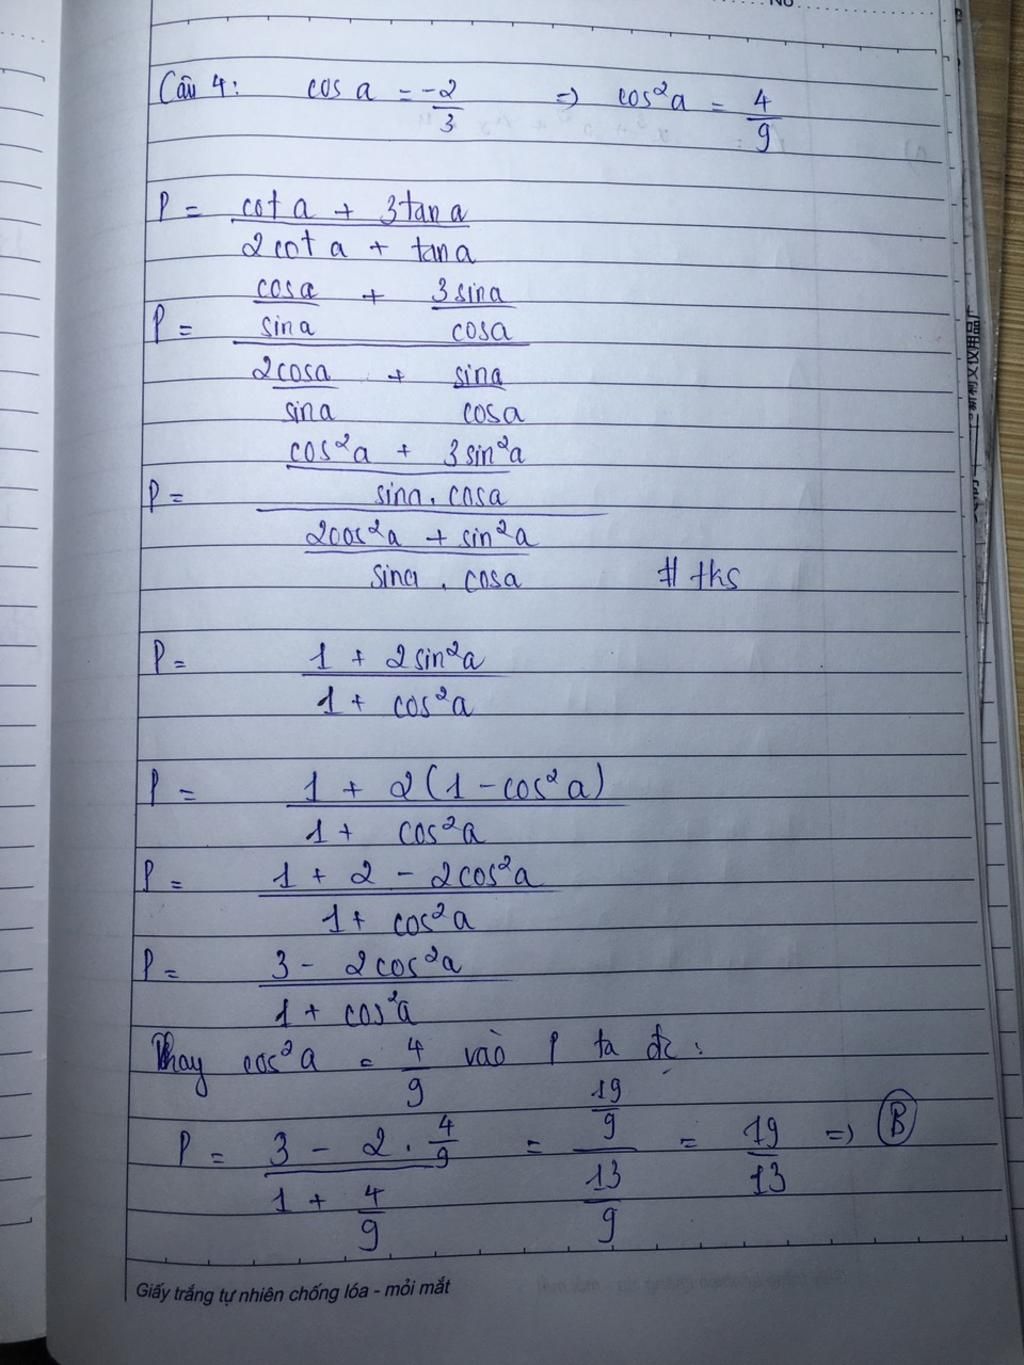 No
Câu 4: cos a = -2/3 => cos²a = 4/9
P = cot a + 3tan a
2cot a + tan a
cosa + 3sina
P = sina cosa
2cosa + sina
sina cosa
cos²a + 3sin²a
P = sina . cosa
2cos²a + sin²a
sina . cosa # ths
P = 1 + 2sin²a
1 + cos²a
P = 1 + 2(1 - cos²a)
1 + cos²a
P = 1 + 2 - 2cos²a
1 + cos²a
P = 3 - 2cos²a
1 + cos²a
Thay cos²a = 4/9 vào P ta đc :
P = 3 - 2 . 4/9 = 19/9 = 19 => B
1 + 4/9 13/9 13
Giấy trắng tự nhiên chống lóa - mỏi mắt